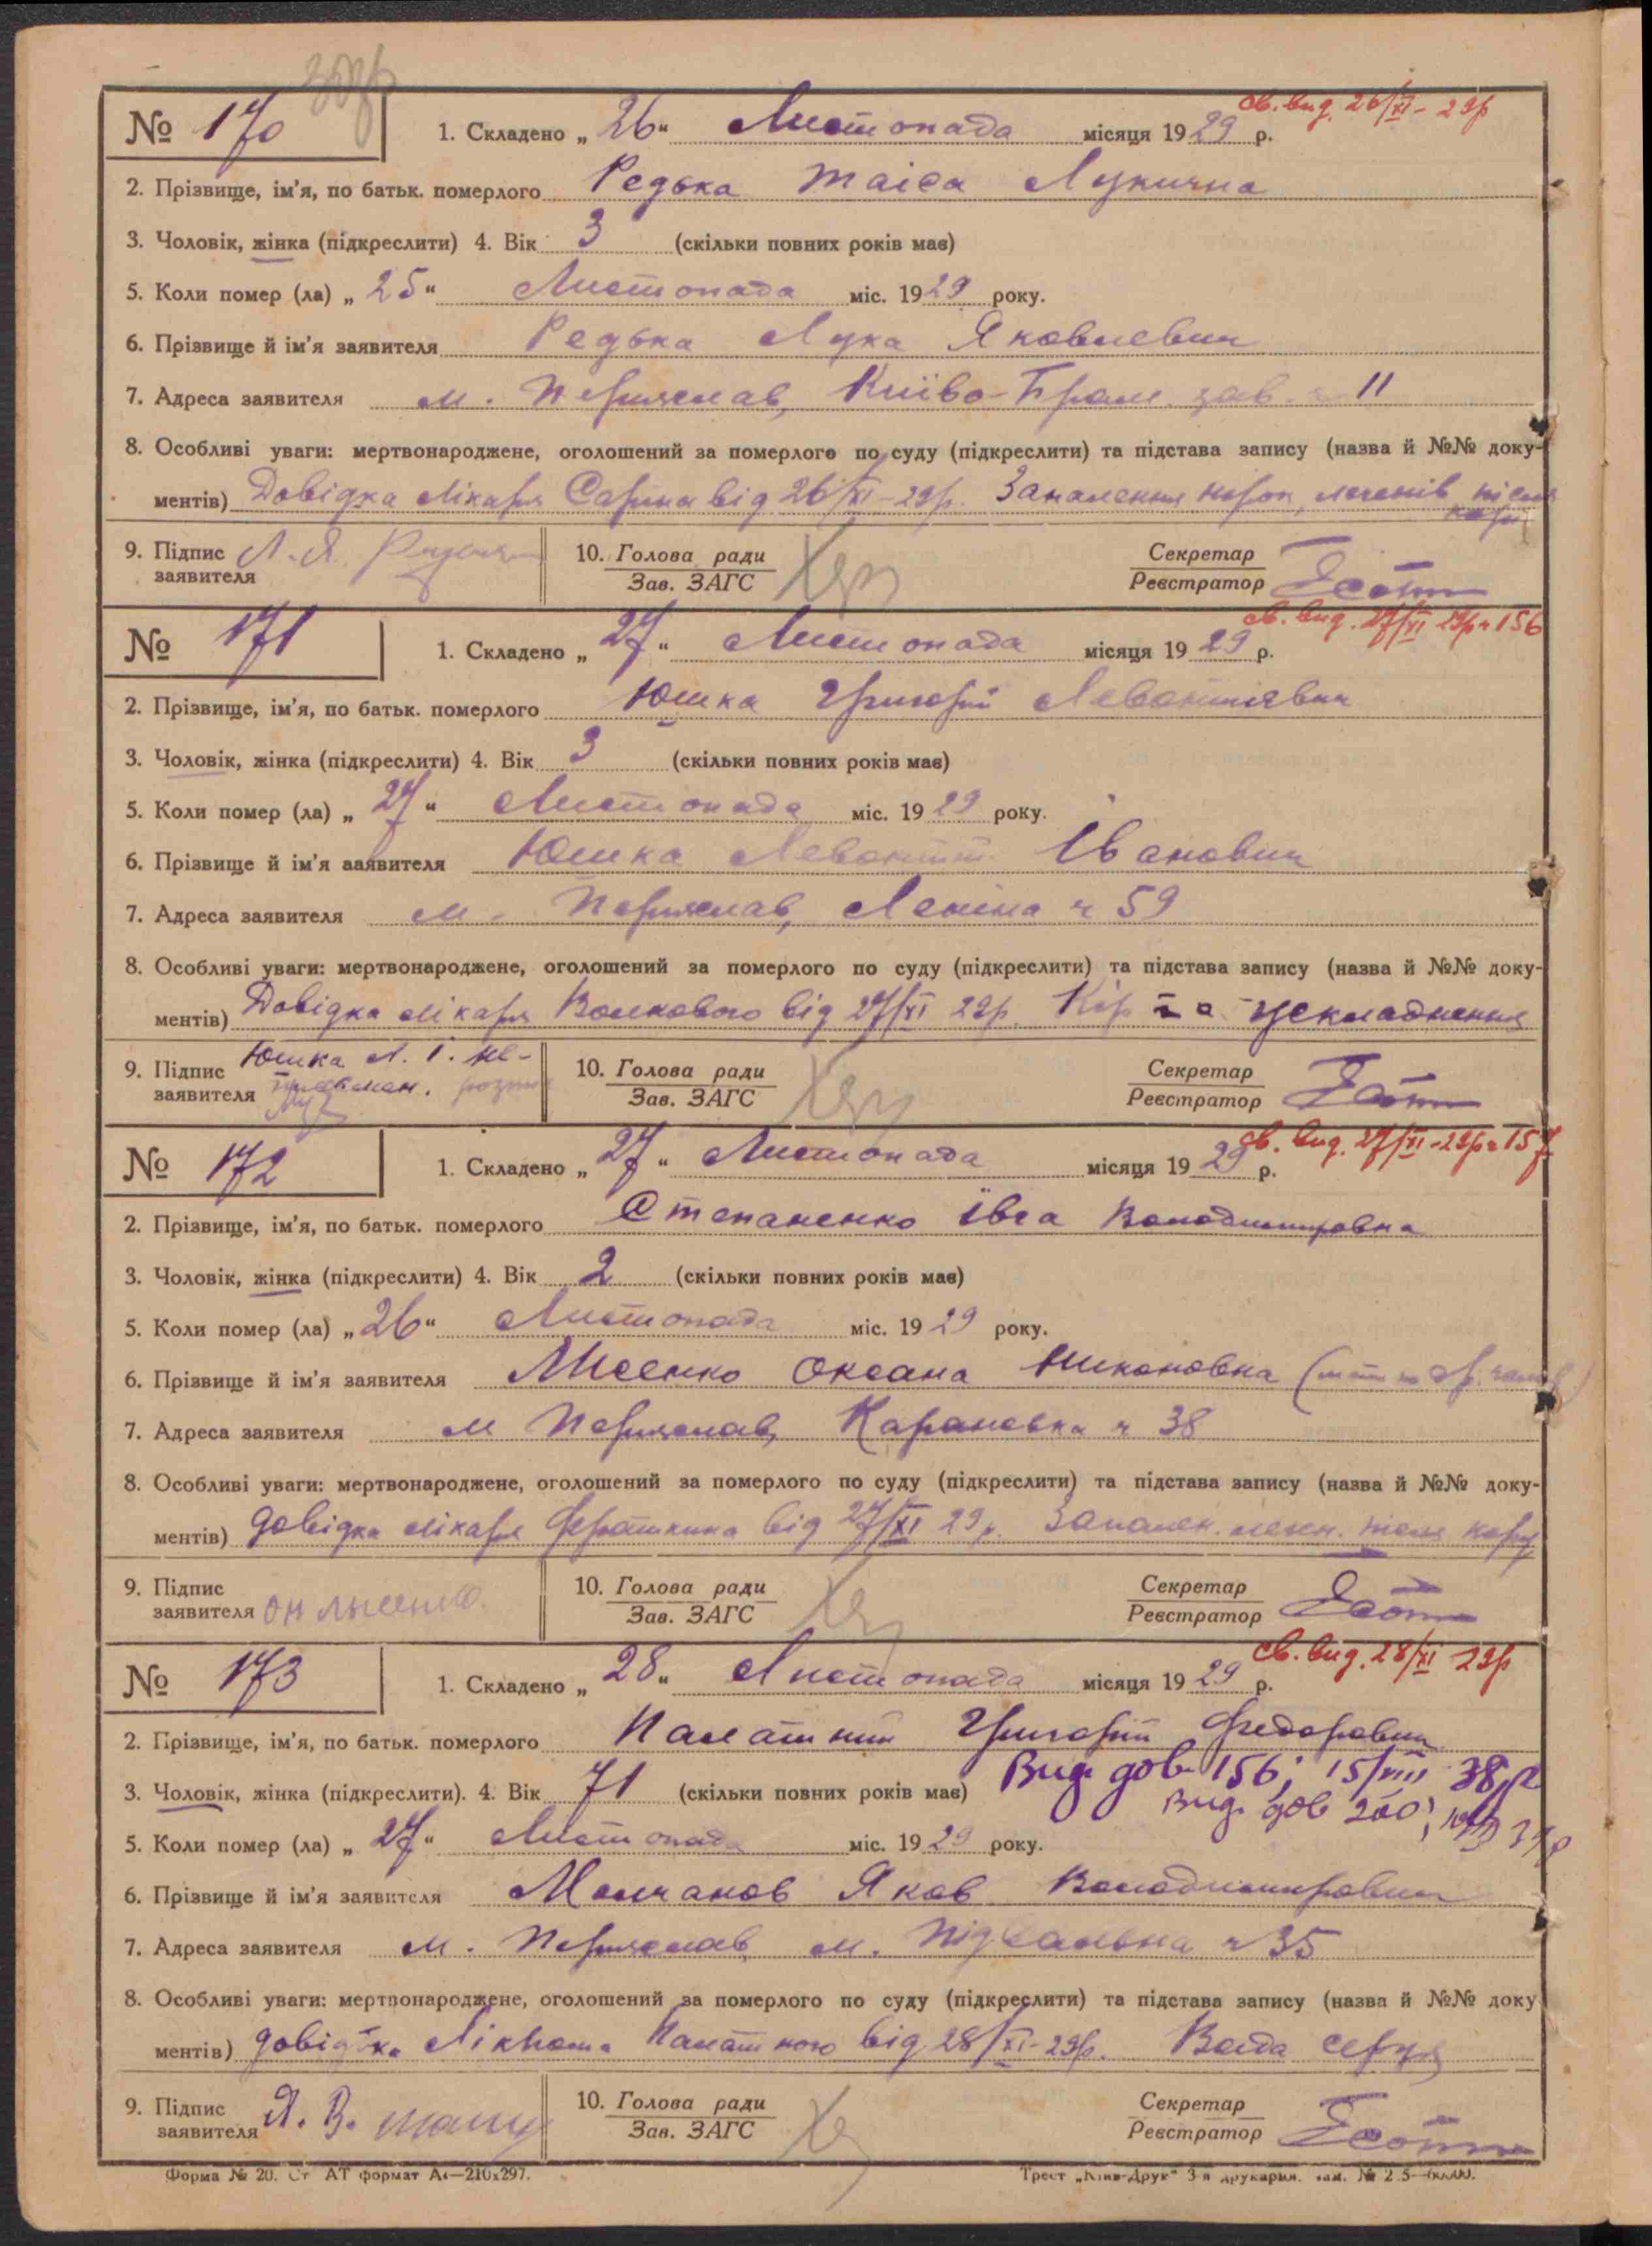 св. вид. 26/XI - 29р
№ 170 1. Складено „ 26 “ Листопада місяця 1929 р.
2. Прізвище, ім'я, по батьк. померлого Редька Таіса Лукична
3. Чоловік, жінка (підкреслити) 4. Вік 3 (скільки повних років має)
5. Коли помер (ла) „ 25 “ Листопада міс. 1929 року.
6. Прізвище й ім'я заявителя Редька Лука Яковлевич
7. Адреса заявителя м. Переяслав, Київо-Брам. зав. 11
8. Особливі уваги: мертвонароджене, оголошений за померлого по суду (підкреслити) та підстава запису (назва й №№ доку-
ментів) Довідка лікаря від 26/XI-29р. Запалення нирок, легенів після
кору
9. Підпис Л. Я. 10. Голова ради Секретар
заявителя Зав. ЗАГС Реєстратор
св. вид. 27/XI 29р ч 156
№ 171 1. Складено „ 27 “ Листопада місяця 1929 р.
2. Прізвище, ім'я, по батьк. померлого Юшка Григорій Левонтієвич
3. Чоловік, жінка (підкреслити) 4. Вік 3 (скільки повних років має)
5. Коли помер (ла) „ 27 “ Листопада міс. 1929 року.
6. Прізвище й ім'я ааявителя Юшка Левонтій Іванович
7. Адреса заявителя м. Переяслав, Леніна ч 59
8. Особливі уваги: мертвонароджене, оголошений за померлого по суду (підкреслити) та підстава запису (назва й №№ доку-
ментів) Довідка лікаря Волкового від 27/XI 29р. Кір та ускладнення
9. Підпис Юшка Л. І. не-
заявителя письмен. 10. Голова ради Секретар
Зав. ЗАГС Реєстратор
св. вид. 27/XI-29р ч 157
№ 172 1. Складено „ 27 “ Листопада місяця 1929 р.
2. Прізвище, ім'я, по батьк. померлого Степаненко Івга Володимировна
3. Чоловік, жінка (підкреслити) 4. Вік 2 (скільки повних років має)
5. Коли помер (ла) „ 26 “ Листопада міс. 1929 року.
6. Прізвище й ім'я заявителя Лисенко Оксана Никоновна
7. Адреса заявителя м Переяслав, Карановка ч 38
8. Особливі уваги: мертвонароджене, оголошений за померлого по суду (підкреслити) та підстава запису (назва й №№ доку-
ментів) Довідка лікаря від 27/XI 29р. Запален. леген. після кору
9. Підпис 10. Голова ради Секретар
заявителя ОН Лысенко Зав. ЗАГС Реєстратор
св. вид. 28/XI 29р
№ 173 1. Складено „ 28 “ Листопада місяця 1929 р.
2. Прізвище, ім'я, по батьк. померлого Палатний Григорій Федорович
3. Чоловік, жінка (підкреслити). 4. Вік 71 (скільки повних років має) Вид дов 156; 15/VIII 38 р
вид. дов 200;
5. Коли помер (ла) „ 27 “ Листопада міс. 1929 року.
6. Прізвище й ім'я заявителя Молчанов Яков Володимирович
7. Адреса заявителя м. Переяслав м. Підвальна ч 35
8. Особливі уваги: мертвонароджене, оголошений за померлого по суду (підкреслити) та підстава запису (назва й №№ доку
ментів) Довідка Лікпома Палатного від 28/XI-29р. Вада серця
9. Підпис Я. В. 10. Голова ради Секретар
заявителя Зав. ЗАГС Реєстратор
Форма № 20. Ст АТ формат А4—210х297. Трест „Київ-Друк“ 3-я друкарня.